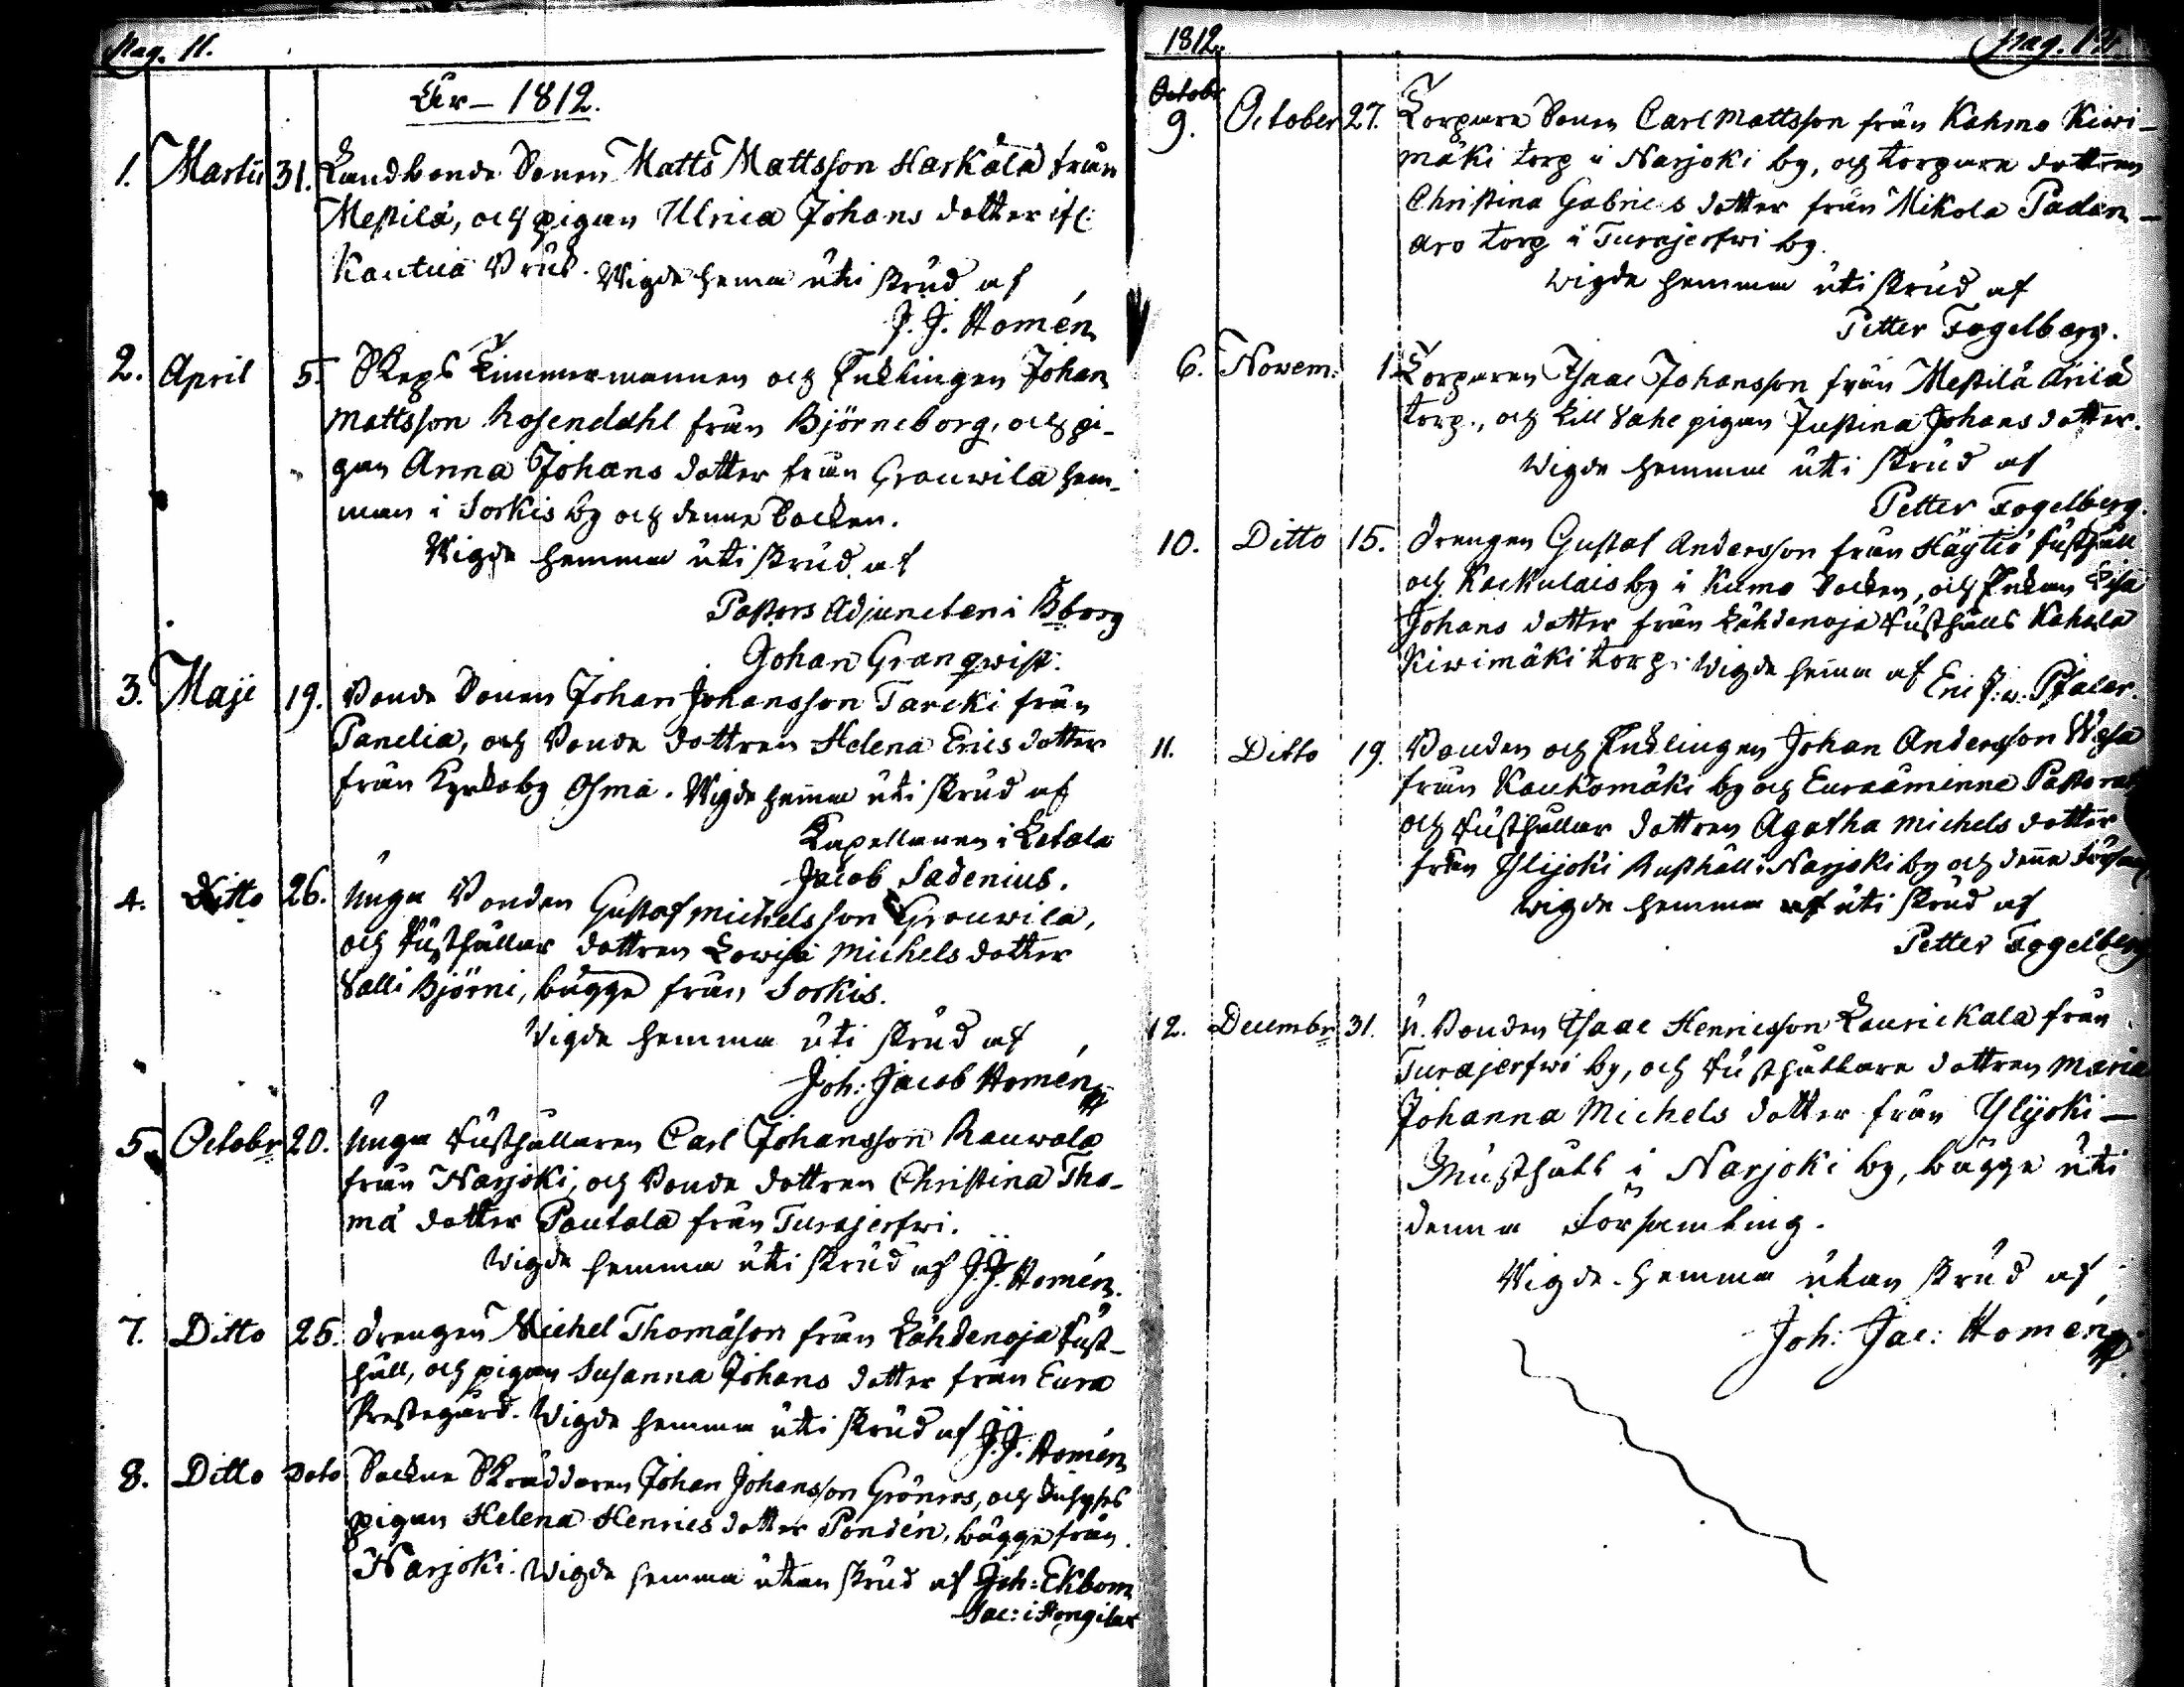 Pag. 11.
År – 1812.
1. Martii 31. Landbonde Sonen Matts Mattsson Harkälä från
Mestilä, och pigan Ulrica Johans dotter if:
Kautua Bruk. Wigde hema uti skrud af
J. J. Homén
2. April 5. Skeps Timmermannen och Enklingen Johan
Mattsson Rosendahl från Björneborg, och pi-
gan Anna Johans dotter från Grouwila hem-
man i Sorkis by och denne Socken.
Wigde hemma uti skrud af
Pastors Adjuncten i Bborg
Johan Granqwist.
3. Maji 19. Bonde Sonen Johan Johansson Tarcki från
Panelia, och Bonde dottren Helena Erics dotter
från Kyrkoby Osma. Wigde hemma uti skrud af
Capellanen i Letala
Jacob Sadenius.
4. Ditto 26. Unga Bonden Gustaf Michelsson Grouwila,
och Rusthållar dottren Lowisa Michels dotter
Salli Björni, bägge från Sorkis.
Vigde hemma uti skrud af
Joh: Jacob Homén
5. Octobr 20. Unga Rusthållaren Carl Johansson Rauwola
från Narjoki, och Bonde dottren Christina Tho-
mä dotter Pautola från Turajerfwi.
Wigde hemma uti skrud af J. J. Homén.
7. Ditto 25. Drengen Michel Thomäson från Lähdenoja Rust-
håll, och pigan Susanna Johans dotter från Eura
Prestegård. Wigde hemma uti skrud af J. J. Homén
8. Ditto Dato Sockne Skräddaren Johan Johansson Grönros, och
pigan Helena Henrics dotter Pondén, bägge från
Narjoki. Wigde hemma utan skrud af Joh: Ekbom
Sac: i Hongilax
1812. Pag.
Octobr
9. October 27. Torpare Sonen Carl Mattsson från Kahma Kiwi-
mäki torp i Narjoki by, och torpare dottren
Christina Gabriels dotter från Mikola Padan-
aro torp i Turajerfwi by.
Wigde hemma uti skrud af
Petter Fogelberg.
6. Novem: 1. Torparen Isaac Johansson från Mestilä Anila
torp., och Sahe pigan Justina Johans dotter.
Wigde hemma uti skrud af
Petter Fogelberg.
10. Ditto 15. Drengen Gustaf Andersson från Häytiö Rusthåll
och Kockulais by i Kumo Socken, och Enkan Lisa
Johans dotter från Lähdenoja Rusthålls Kahala
Kiwimäki torp. Wigde hema af Eric J. v. Pfaler.
11. Ditto 19. Bonden och Enklingen Johan Andersson Wesa
från Kaukomäki by och Euraåminne Pastorat
och Rusthållar dottren Agatha Michels dotter
från Ylijoki Rusthåll i Narjoki by och denne Församl
Wigde hemma af uti skrud af
Petter Fogelberg
12. Decembr 31. U. Bonden Isaac Henricsson Laurickala från
Turajerfwi by, och Rusthållare dottren Maria
Johanna Michels dotter från Ylijoki –
Rusthåll i Narjoki by, bägge uti
denna Församling.
Wigde hemma utan skrud af
Joh: Jac: Homén